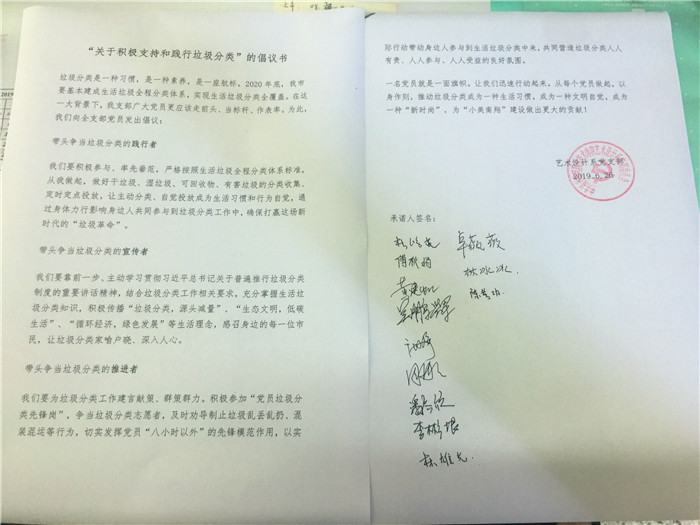 “关于积极支持和践行垃圾分类”的倡议书
垃圾分类是一种习惯，是一种素养，是一座航标，2020 年底，我市
要基本建成生活垃圾全程分类体系，实现生活垃圾分类全覆盖。在这
一大背景下，我支部广大党员更应该走前头、当标杆、作表率。为此，
我们向全支部党员发出倡议：
带头争当垃圾分类的践行者
我们要积极参与、率先垂范，严格按照生活垃圾全程分类体系标准，
从我做起，做好干垃圾、湿垃圾、可回收物、有害垃圾的分类收集、
定时定点投放，让主动分类、自觉投放成为生活习惯和行为自觉，通
过身体力行影响身边人共同参与到垃圾分类工作中，确保打赢这场新
时代的“垃圾革命”。
带头争当垃圾分类的宣传者
我们要靠前一步、主动学习贯彻习近平总书记关于普遍推行垃圾分类
制度的重要讲话精神，结合垃圾分类工作相关要求，充分掌握生活垃
圾分类知识，积极传播“垃圾分类，源头减量”、“生态文明，低碳
生活”、“循环经济，绿色发展”等生活理念，感召身边的每一位市
民，让垃圾分类家喻户晓、深入人心。
带头争当垃圾分类的推进者
我们要为垃圾分类工作建言献策、群策群力。积极参加“党员垃圾分
类先锋岗”，争当垃圾分类志愿者，及时劝导制止垃圾乱丢乱扔、混
装混运等行为，切实发挥党员“八小时以外”的先锋模范作用，以实
际行动带动身边人参与到生活垃圾分类中来，共同营造垃圾分类人人
有责、人人参与、人人受益的良好氛围。
一名党员就是一面旗帜。让我们迅速行动起来，从每个党员做起，以
身作则，推动垃圾分类成为一种生活习惯，成为一种文明自觉，成为
一种“新时尚”，为“小美南翔”建设做出更大的贡献！
艺术设计系党支部
2019.6.26
承诺人签名：
卓薇薇
林冰冰
潘
李彬
林雄